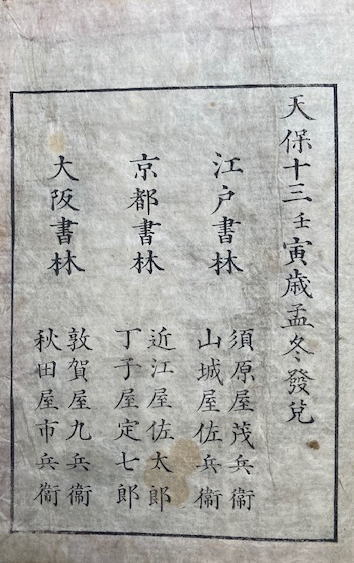 天保十三壬寅歳孟冬發兌
江戸書林
須原屋茂兵衞
山城屋佐兵衞
京都書林
近江屋佐太郎
丁子屋定七郎
大阪書林
敦賀屋九兵衞
秋田屋市兵衞